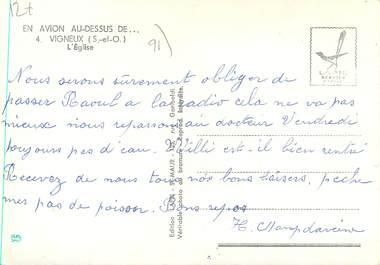 12+
EN AVION AU-DESSUS DE...
4. VIGNEUX (S.-et-O.)
L'Église
91)
Nous serons sûrement obliger de
passer Raoul a la radio cela ne va pas
mieux nous repasson au docteur Vendredi
toujours pas d'eau. Willi est-il bien rentré
Recevez de nous tous nos bons baisers, peche
mes pas de poisson. Bons repos
H.
Edition LAPIE, ST-MAUR
Véritable photo au bromure - Reprod. interdite